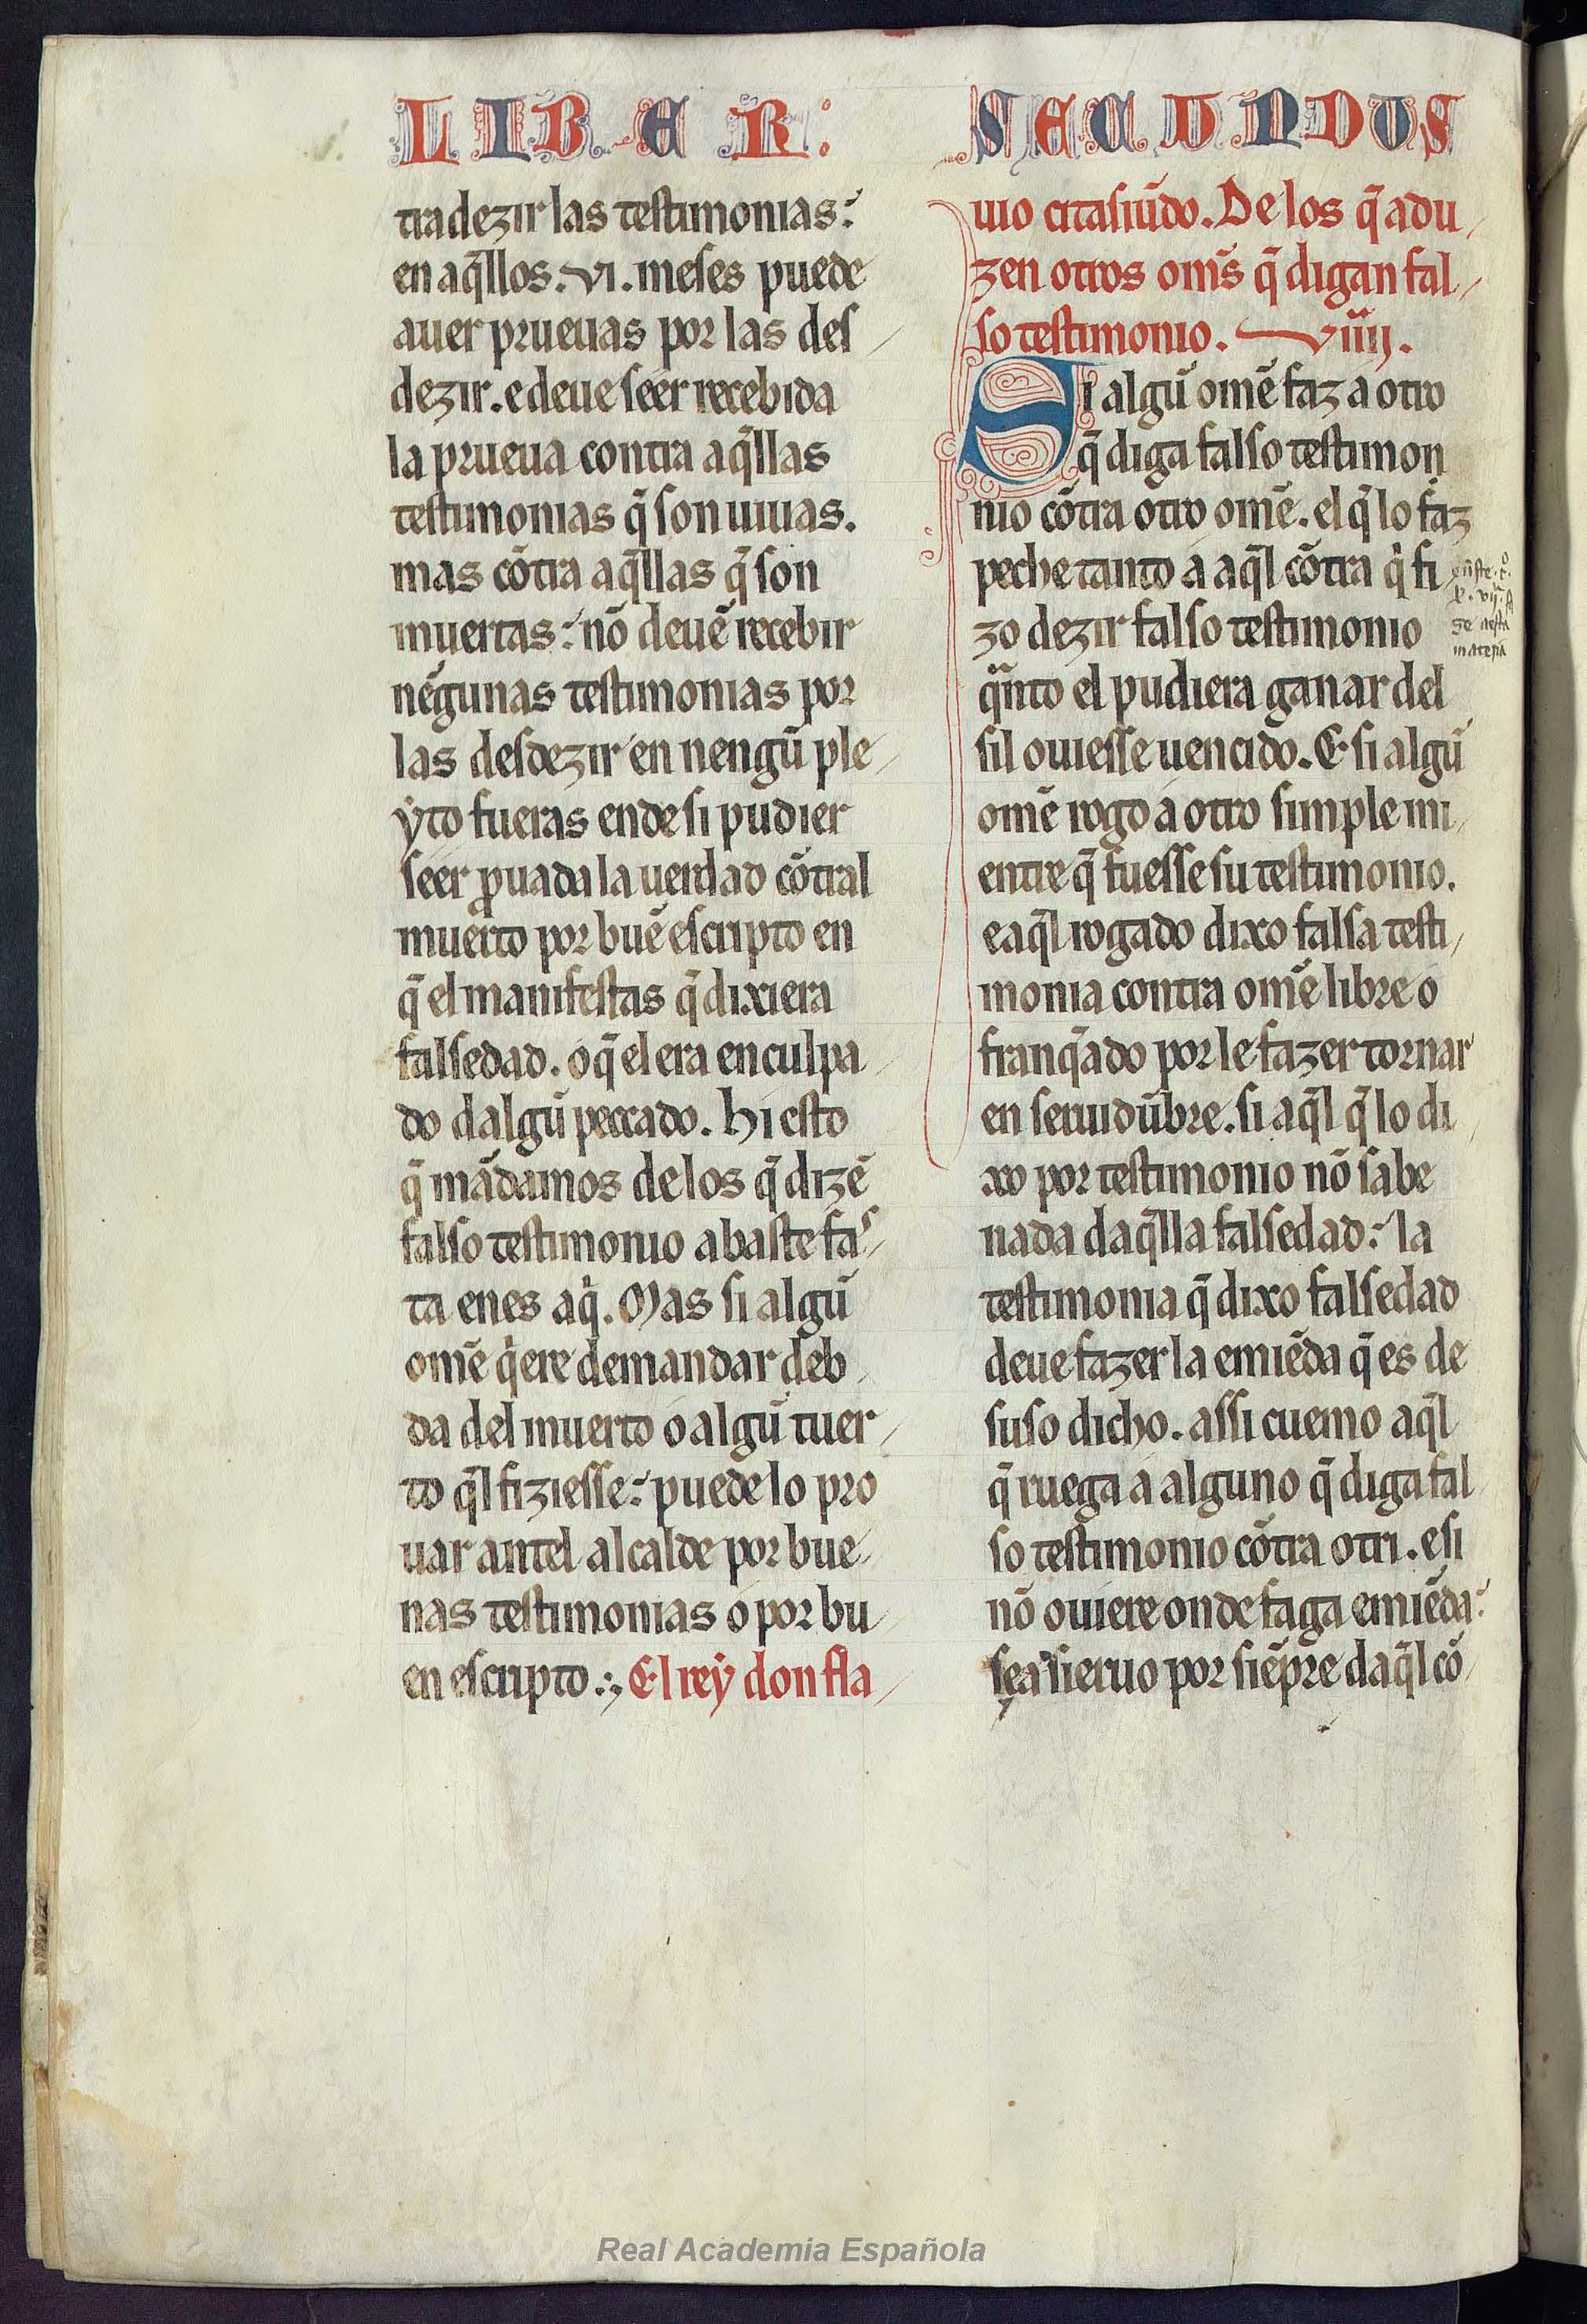 LIBER:
tra dezir las testimonias:
en aq̃llos. vi. meses puede
auer prueuas por las des
dezir. e deue seer recebida
la prueua contra aq̃llas
testimonias q̃ son uiuas.
mas cõtra aq̃llas q̃ son
muertas: nõ deuẽ recebir
negunas testimonias por
las desdezir en nengũ ple
yto fueras ende si pudier
seer ꝓuada la uerdad cõtral
muerto por buẽ escripto en
q̃ el manifestas q̃ dixiera
falsedad. o q̃ el era en culpa
do dalgũ peccado. Hi esto
q̃ mãdamos de los q̃ dizẽ
falso testimonio abaste fas
ta enes aq̇. Mas si algũ
omẽ q̇ere demandar deb
da del muerto o algũ tuer
to q̃l fiziesse: puede lo pro
uar antel alcalde por bue
nas testimonias o por bu
en escripto. El rey don fla
SECUNDUS
uio citasiũdo. De los q̃ adu
zen otros om̃s q̃ digan fal
so testimonio. viiij.
Si algũ omẽ faz a otro
q̃ diga falso testimon
nio cõtra otro omẽ. el q̃ lo faz
peche tanto a aq̃l cõtra q̇ fi
zo dezir falso testimonio
q̃nto el pudiera ganar del
sil ouiesse uencido. E si algũ
omẽ rogo a otro simple mi
entre q̃ fuesse su testimonio.
e aq̃l rogado dixo falsa testi
monia contra omẽ libre o
franq̃ado por le fazer tornar
en seruidũbre. si aq̃l q̃ lo di
xo por testimonio nõ sabe
nada daq̃lla falsedad: la
testimonia q̃ dixo falsedad
deue fazer la emiẽda q̃ es de
suso dicho. assi cuemo aq̃l
q̃ ruega a alguno q̃ diga fal
so testimonio cõtra otri. e si
nõ ouiere onde faga emiẽda:
sea sieruo por siẽpre daq̃l cõ
materia
Real Academia Española